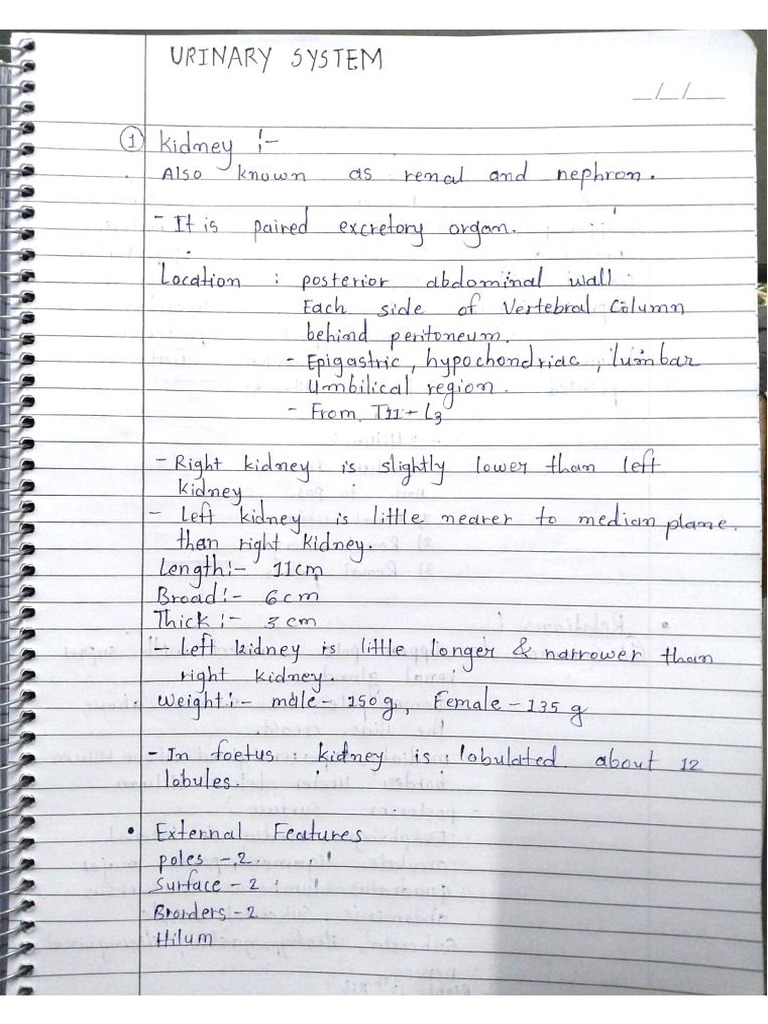 URINARY SYSTEM
_/_/__
① Kidney :-
Also known as renal and nephron.
- It is paired excretory organ.
Location : posterior abdominal wall
Each side of Vertebral Column
behind peritoneum.
- Epigastric, hypochondriac, lumbar
Umbilical region.
- From T11 - L3
- Right kidney is slightly lower than left
kidney
- Left kidney is little nearer to median plane.
then right kidney.
Length:- 11cm
Broad:- 6cm
Thick:- 3cm
- Left kidney is little longer & narrower than
right kidney.
Weight:- male - 150g, Female - 135 g
- In foetus kidney is lobulated about 12
lobules.
• External Features
poles - 2
Surface - 2
Brorders - 2
Hilum